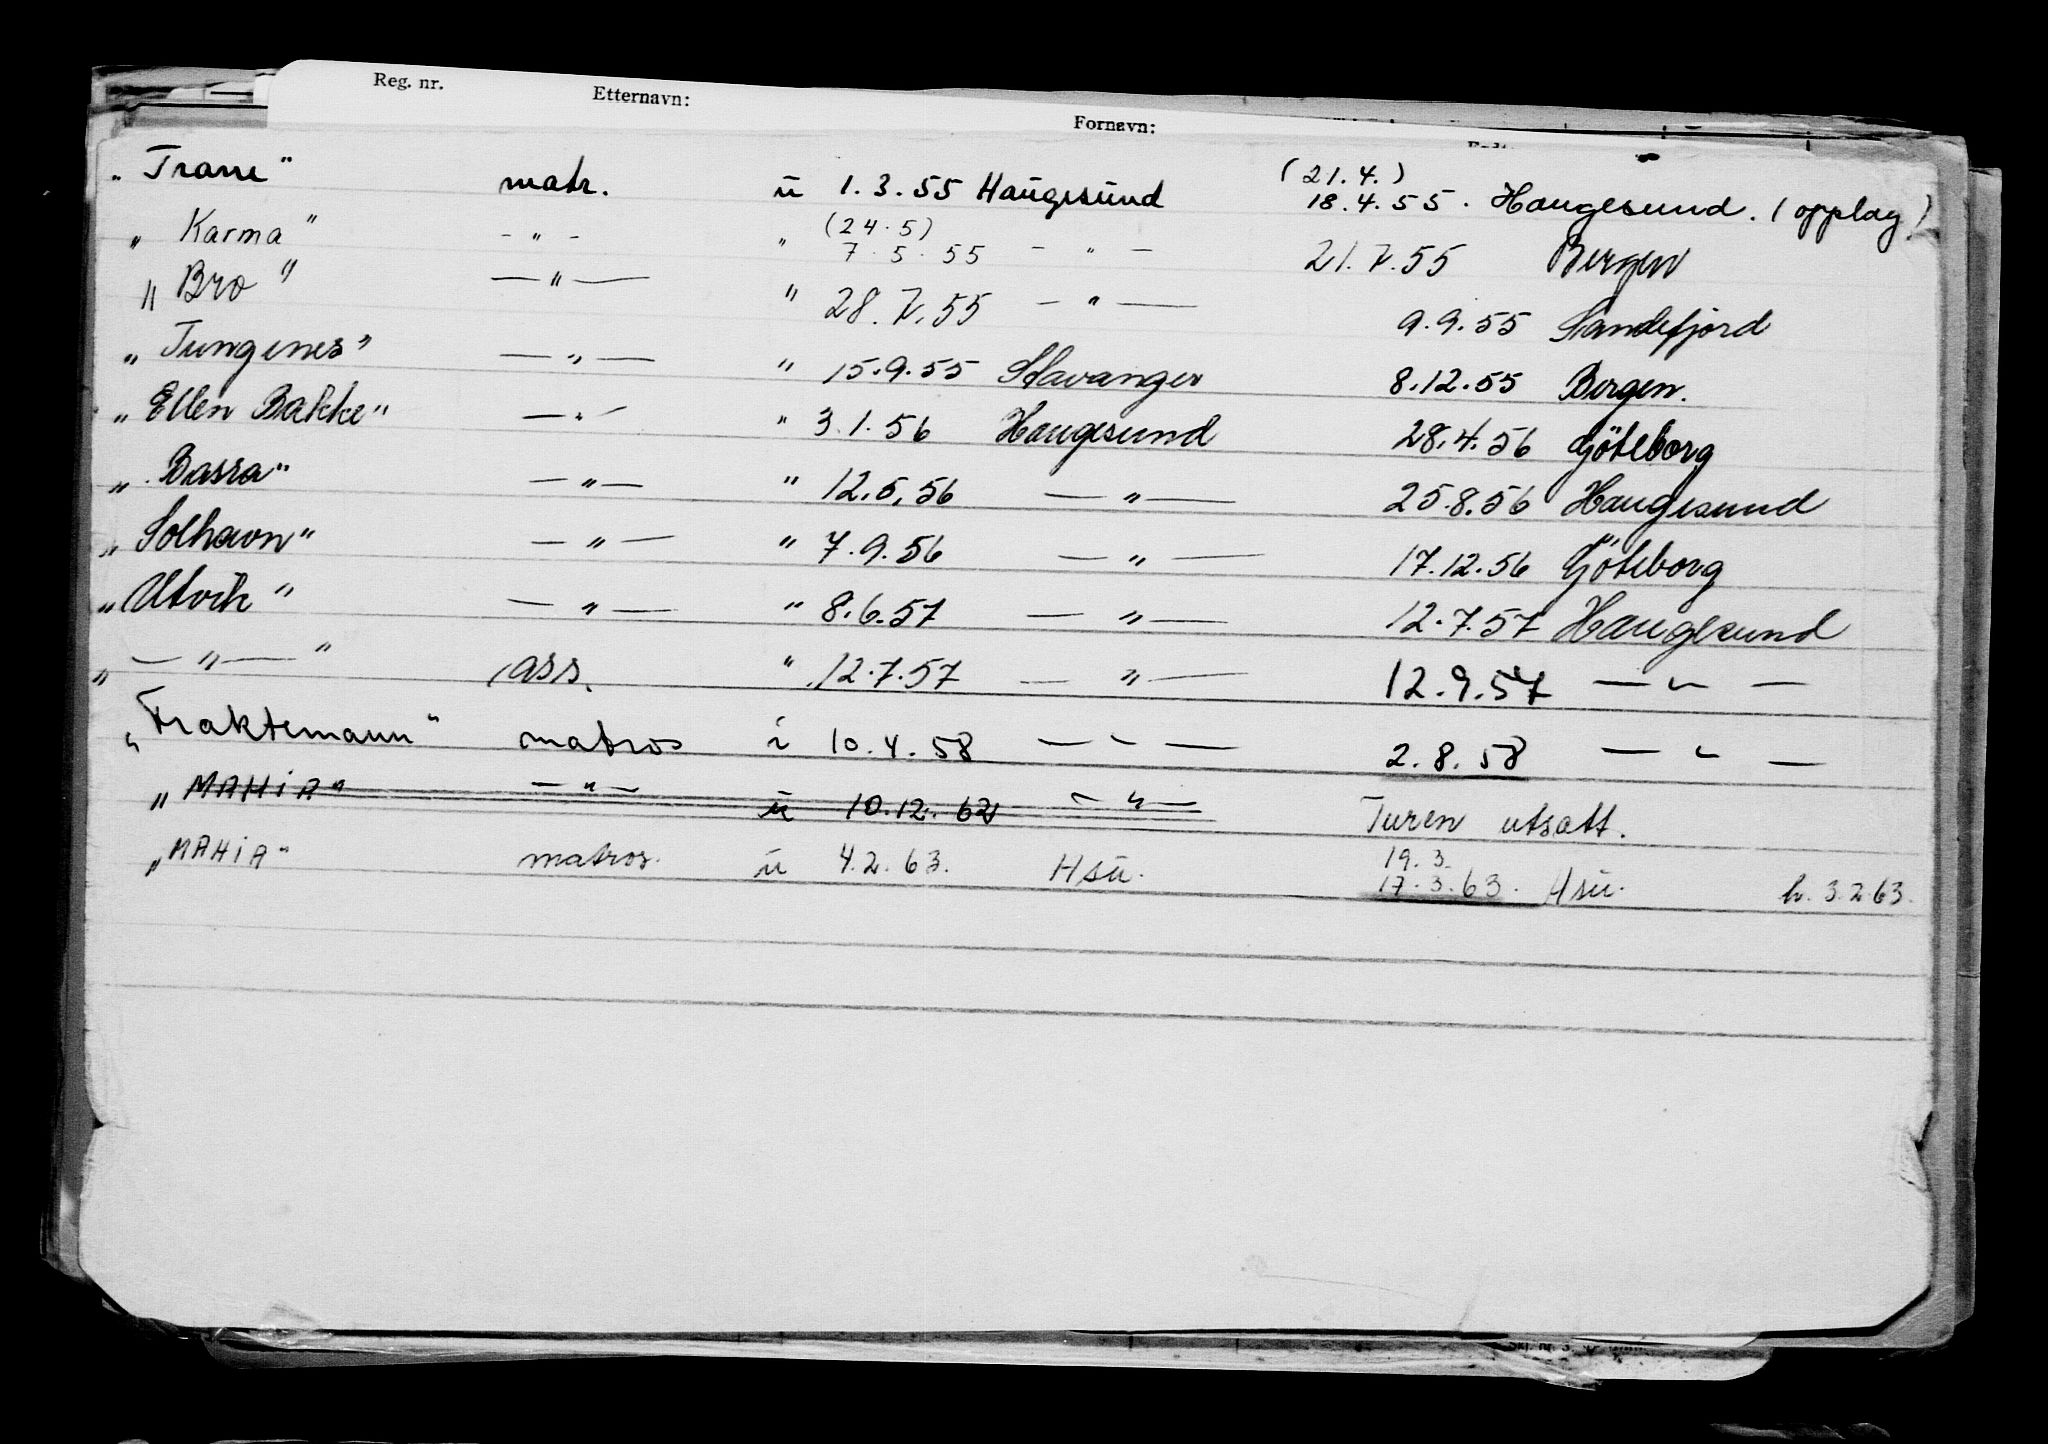 Reg. nr. Etternavn: Fornavn:
"Trane" matr. u 1.3.55 Haugesund (21.4.) 18.4.55. Haugesund. (opplag)
"Karma" -"- " (24.5) 7.5.55 -"- 21.7.55 Bergen
"Bro" -"- " 28.7.55 -"- 9.9.55 Sandefjord
"Tungenes" -"- " 15.9.55 Stavanger 8.12.55 Bergen.
"Ellen Bakke" -"- " 3.1.56 Haugesund 28.4.56 Göteborg
"Basra" -"- " 12.5.56 -"- 25.8.56 Haugesund
"Solhavn" -"- " 7.9.56 -"- 17.12.56 Göteborg
"Utvik" -"- " 8.6.57 -"- 12.7.57 Haugesund
"-"-" ass. " 12.7.57 -"- 12.9.57 -"-
"Fraktemann" matros i 10.4.58 -"- 2.8.58 -"-
"MAHIA" -"- u 10.12.62 -"- Turen utsatt.
"MAHIA" matros. u 4.2.63. Hsu. 19.3. 17.3.63. Hsu. h. 3.2.63.